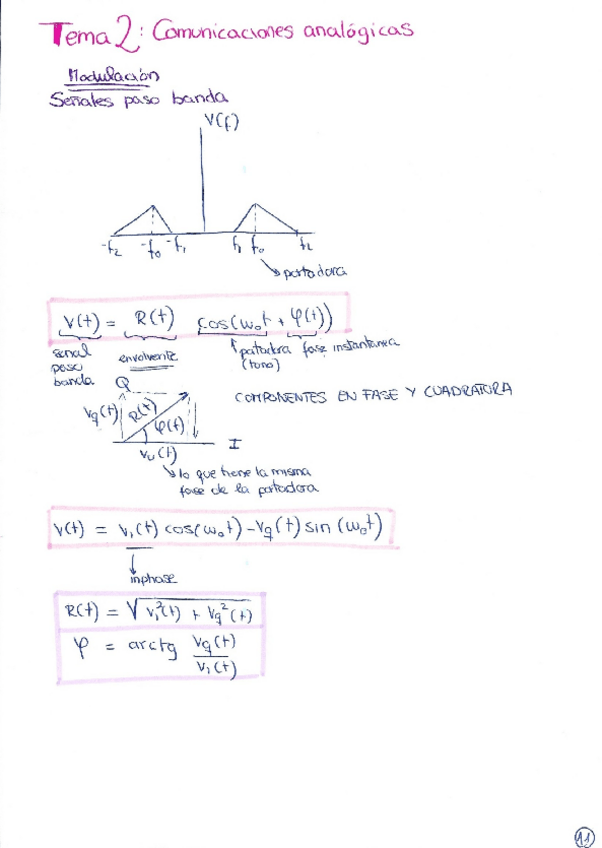 Tema 2: Comunicaciones analógicas
Modulación
Señales paso banda
V(f)
-f₂ -f₀ -f₁ f₁ f₀ f₂
portadora
V(t) = R(t) cos(ω₀t + φ(t))
señal paso banda
envolvente
portadora (tono)
fase instantanea
COMPONENTES EN FASE Y CUADRATURA
Q
Vq(t) R(t) φ(t)
I
lo que tiene la misma
fase de la portadora
V(t) = Vi(t) cos(ω₀t) - Vq(t) sin(ω₀t)
inphase
R(t) = √Vi²(t) + Vq²(t)
φ = arctg Vq(t)/Vi(t)
11